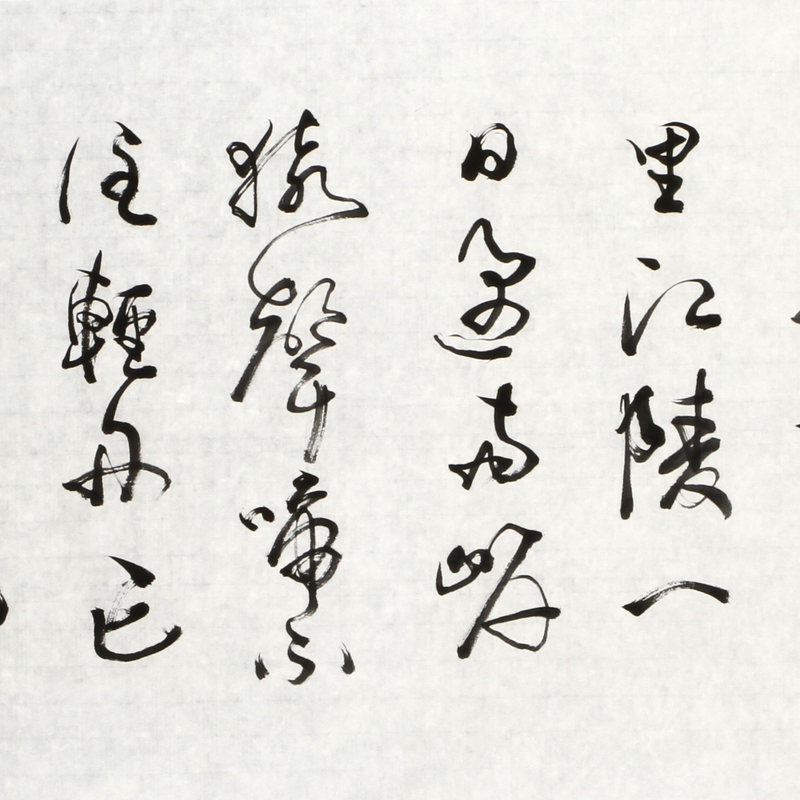 里江陵一
日還兩岸
猿聲啼不
住輕舟已